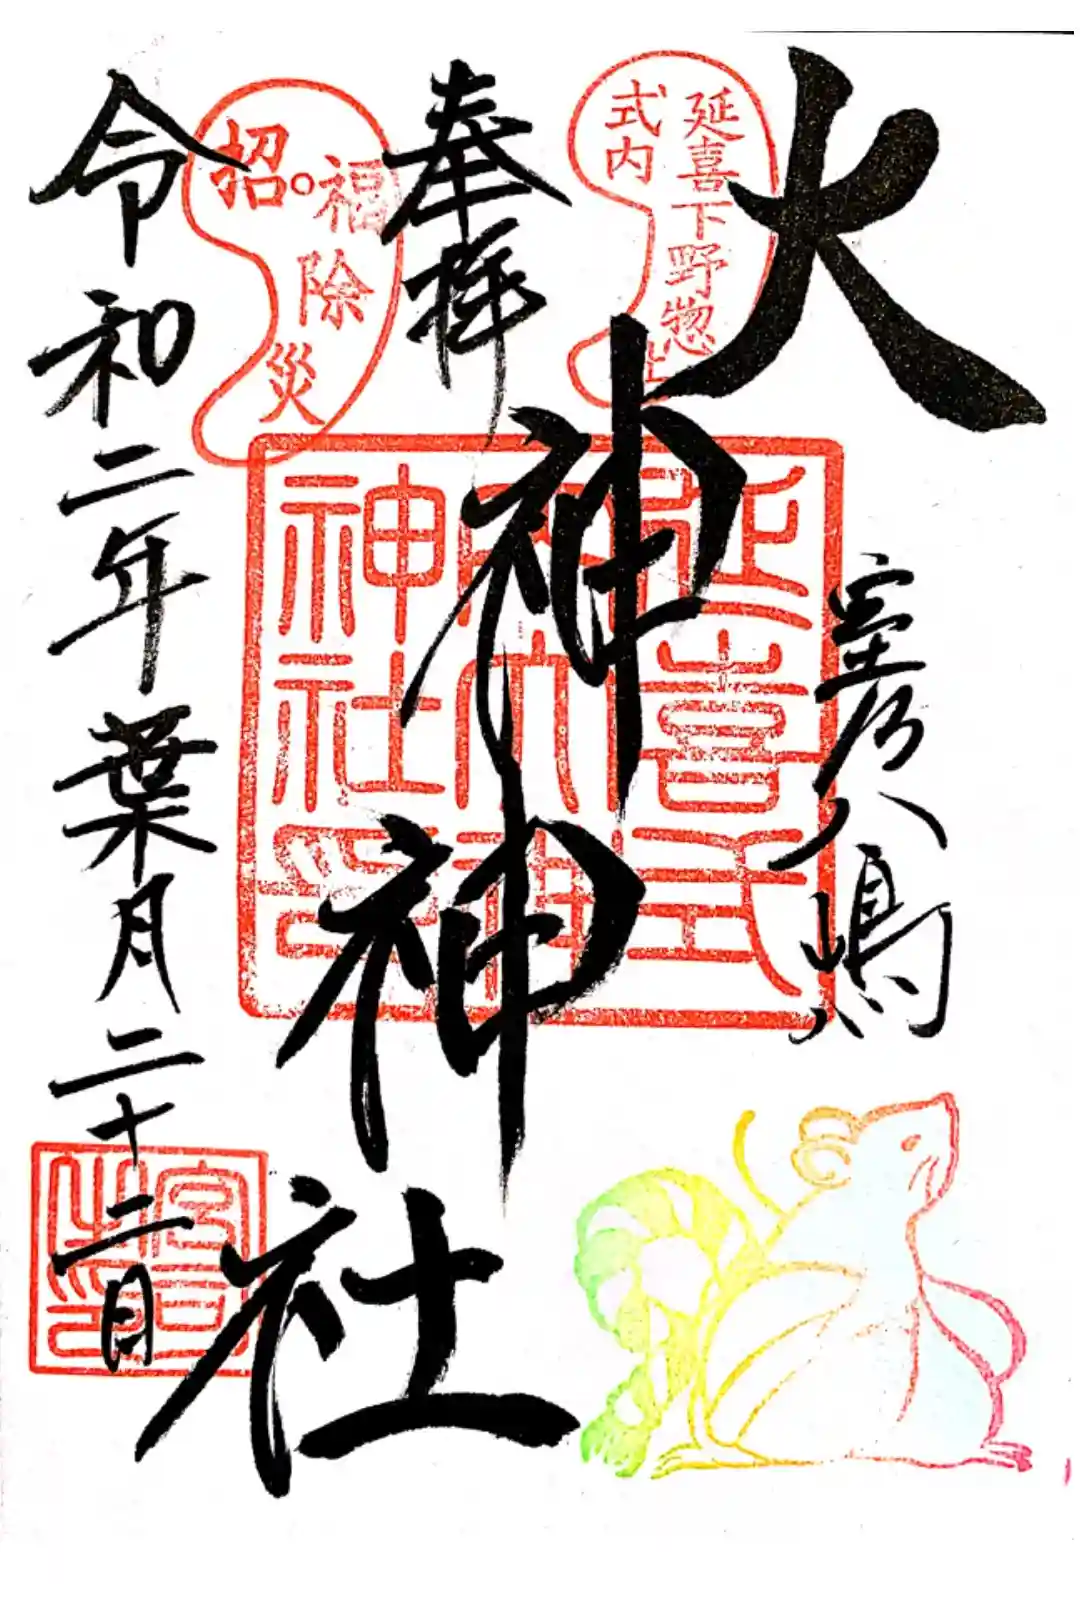 大神神社
室乃八嶋
奉拝
令和二年葉月二十二日
延喜下野惣社
式内
招福
除災
延喜式
内大神
神社印
宮司
之印